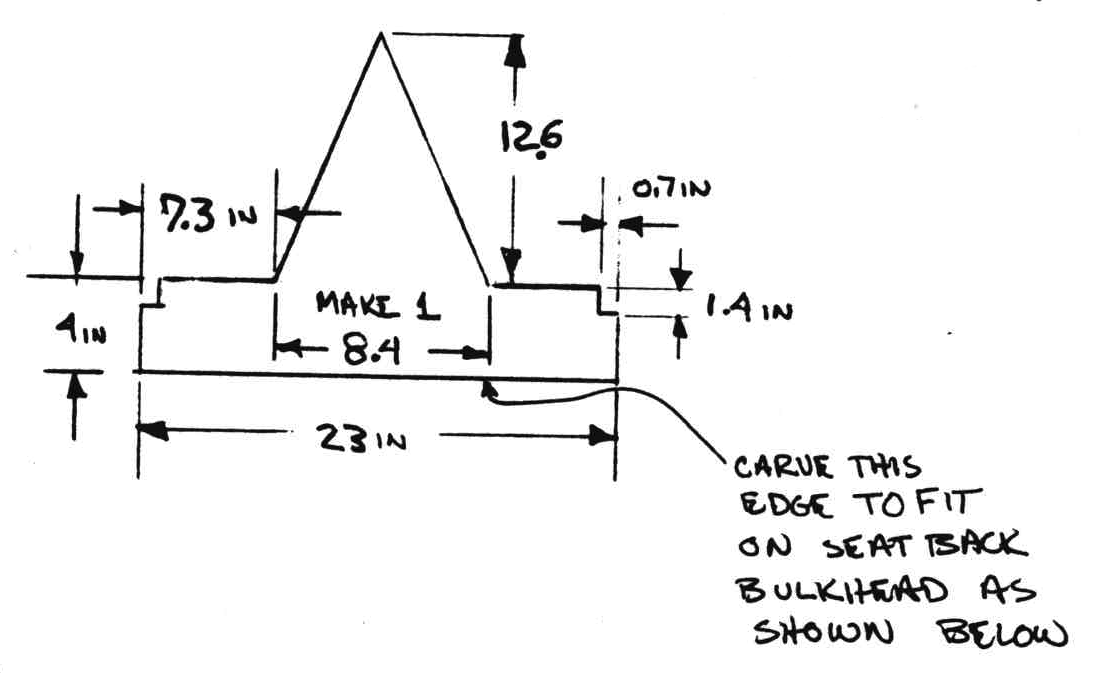 12.6
0.7 IN
7.3 IN
MAKE 1
1.4 IN
4 IN
8.4
23 IN
CARVE THIS
EDGE TO FIT
ON SEAT BACK
BULKHEAD AS
SHOWN BELOW